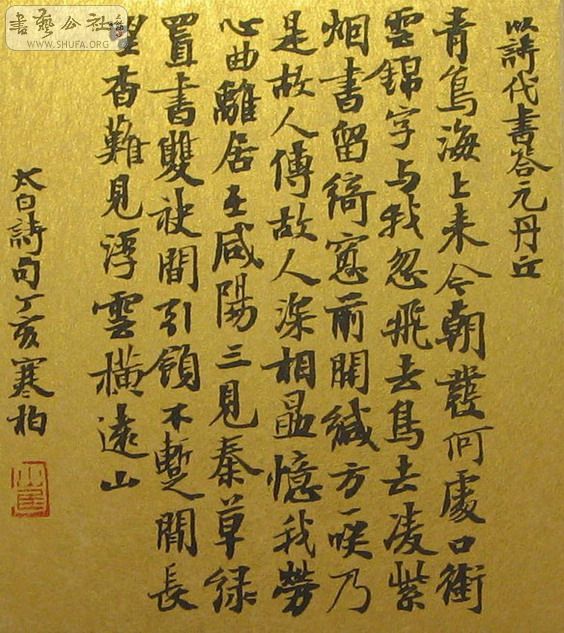 書藝公社
WWW.SHUFA.ORG
以詩代書答元丹丘
青鳥海上来今朝發何處口銜
雲錦字与我忽飛去鳥去凌紫
烟書留綺窓前開緘方一咲乃
是故人傳故人深相勗憶我勞
心曲離居在咸陽三見秦草緑
置書雙袂間引領不暫閒長
望杳難見浮雲橫遠山
太白詩句丁亥寒柏